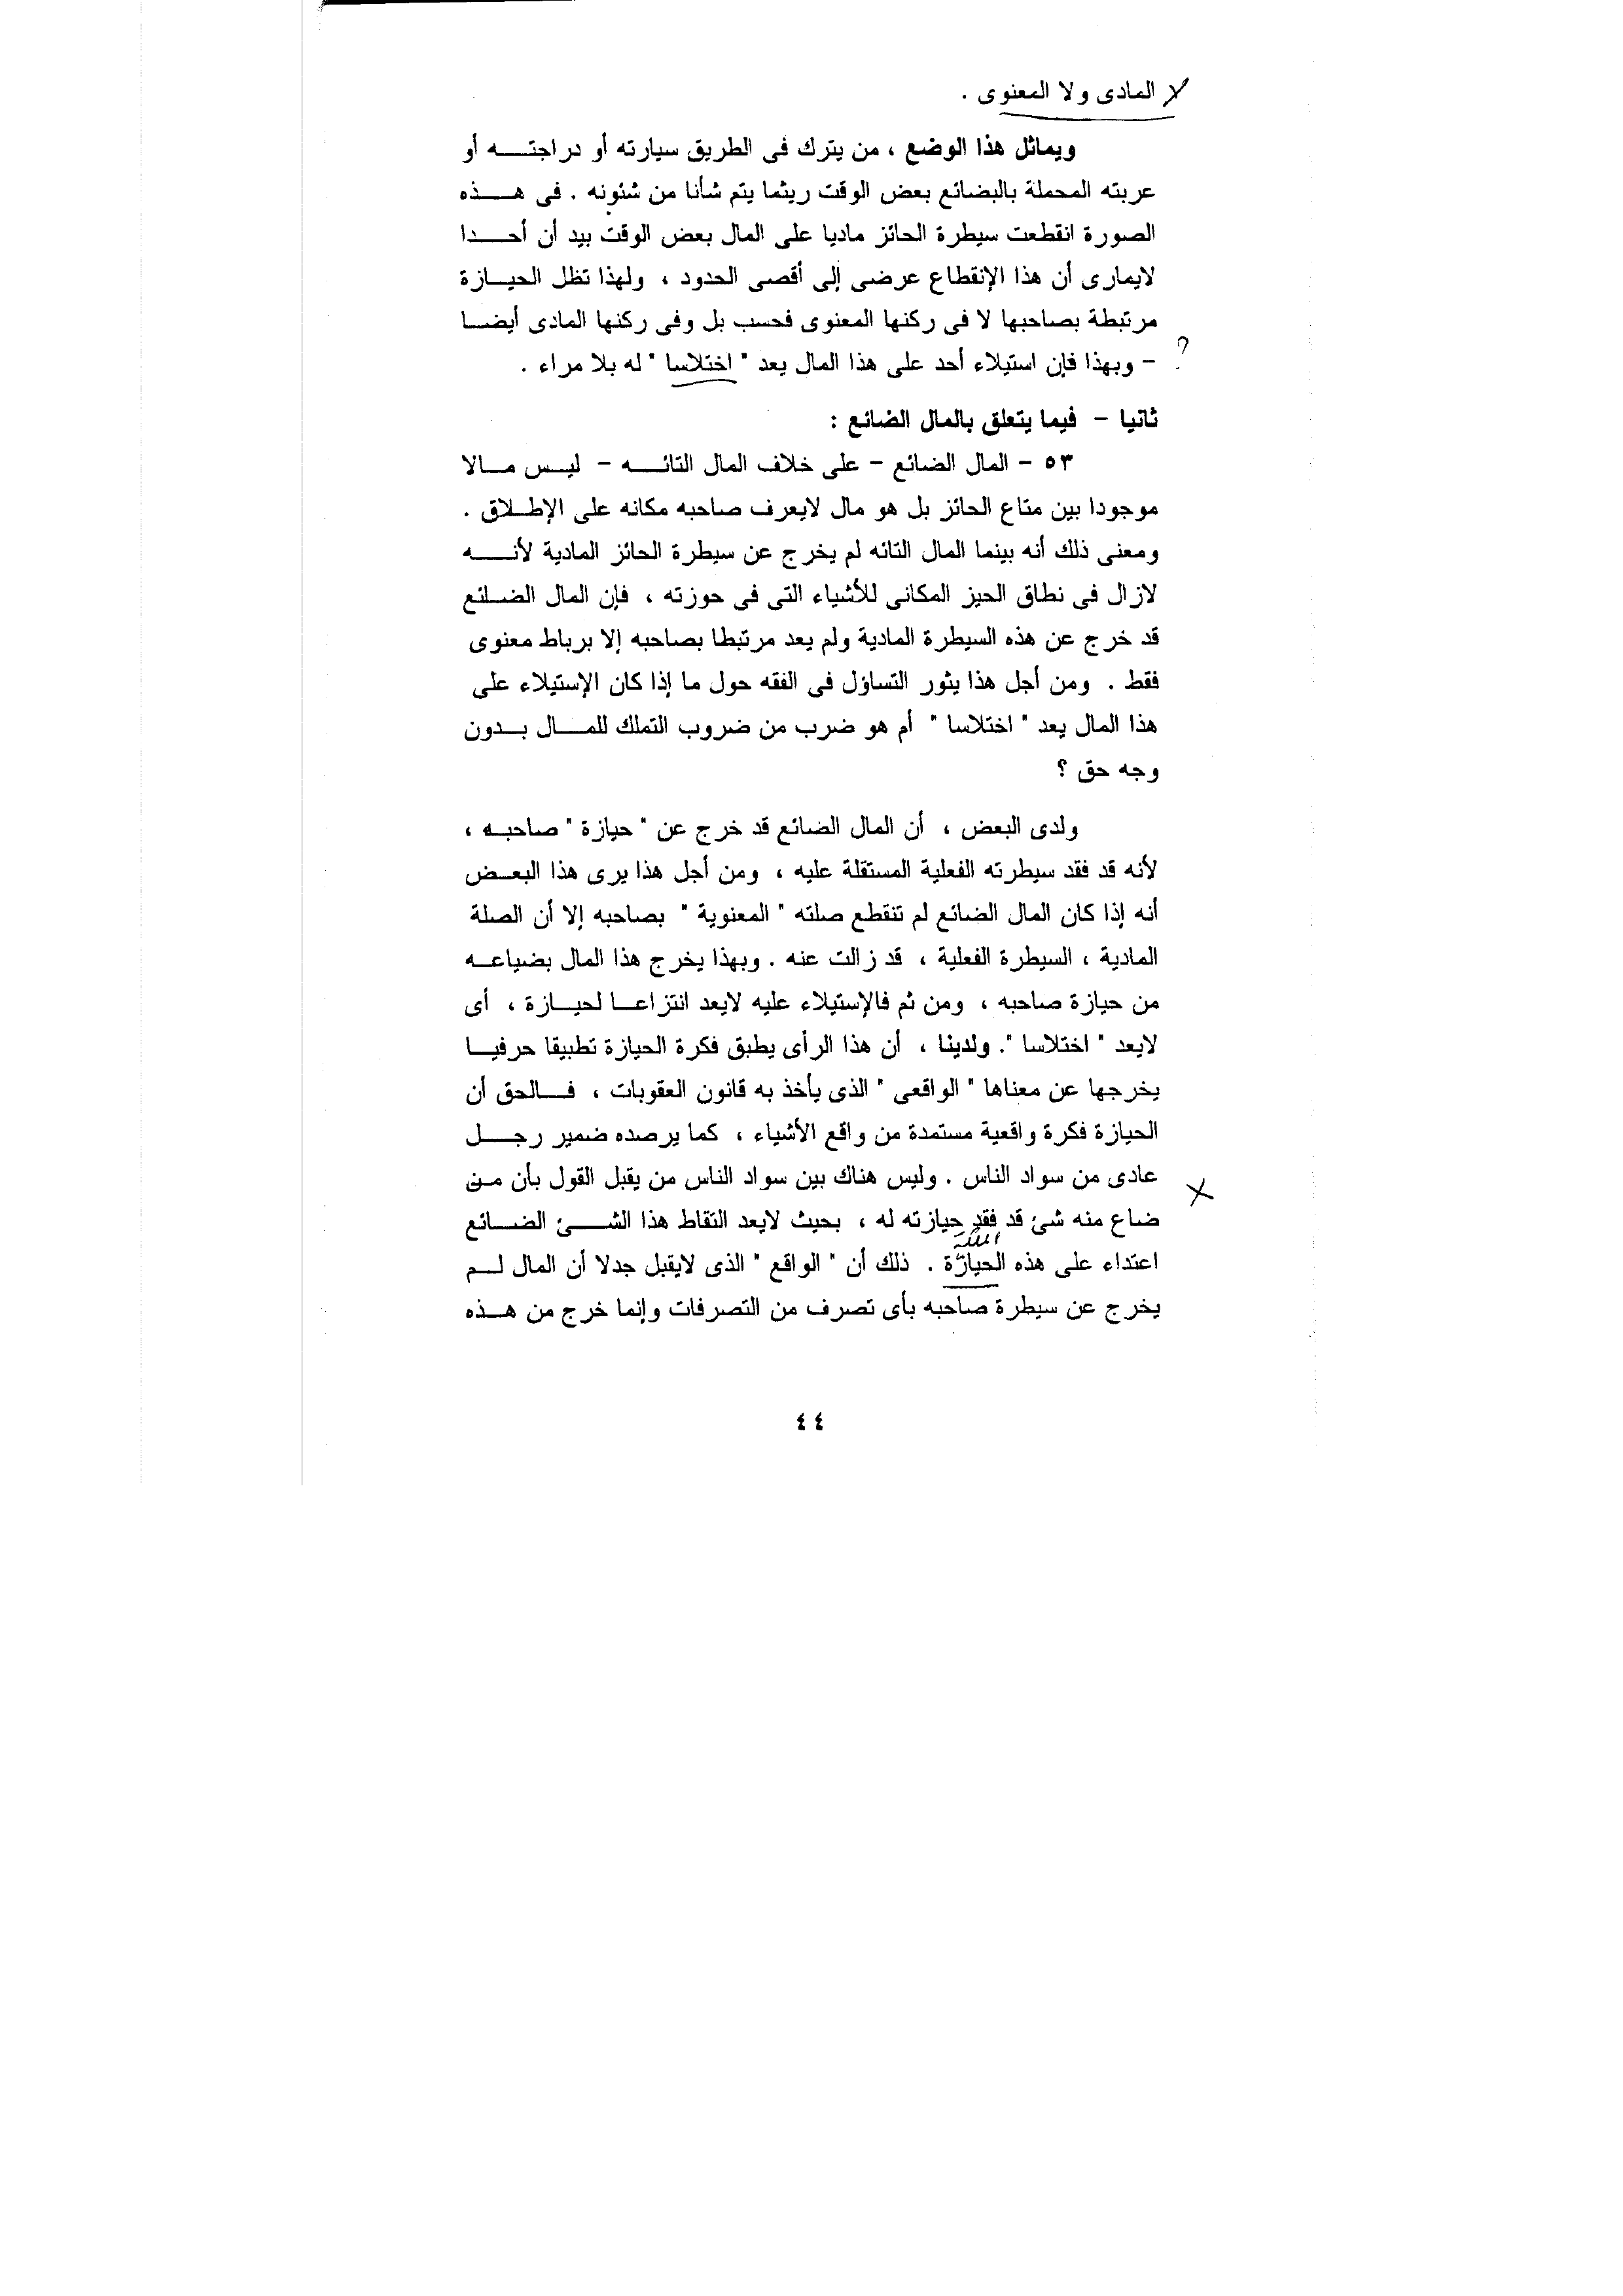 المادى ولا المعنوى .
ويماثل هذا الوضع ، من يترك فى الطريق سيارته أو دراجتـــه أو
عربته المحملة بالبضائع بعض الوقت ريثما يتم شأنا من شئونه . فى هـــذه
الصورة انقطعت سيطرة الحائز ماديا على المال بعض الوقت بيد أن أحـــدا
لايمارى أن هذا الإنقطاع عرضى إلى أقصى الحدود ، ولهذا تظل الحيـــازة
مرتبطة بصاحبها لا فى ركنها المعنوى فحسب بل وفى ركنها المادى أيضــا
– وبهذا فإن استيلاء أحد على هذا المال يعد " اختلاسا " له بلا مراء . ?
ثانيا – فيما يتعلق بالمال الضائع :
٥٣ – المال الضائع – على خلاف المال التائــــه – ليــس مــالا
موجودا بين متاع الحائز بل هو مال لايعرف صاحبه مكانه على الإطــلاق .
ومعنى ذلك أنه بينما المال التائه لم يخرج عن سيطرة الحائز المادية لأنـــــه
لازال فى نطاق الحيز المكانى للأشياء التى فى حوزته ، فإن المال الضــائع
قد خرج عن هذه السيطرة المادية ولم يعد مرتبطا بصاحبه إلا برباط معنوى
فقط . ومن أجل هذا يثور التساؤل فى الفقه حول ما إذا كان الإستيلاء على
هذا المال يعد " اختلاسا " أم هو ضرب من ضروب التملك للمـــال بـــدون
وجه حق ؟
ولدى البعض ، أن المال الضائع قد خرج عن " حيازة " صاحبــه ،
لأنه قد فقد سيطرته الفعلية المستقلة عليه ، ومن أجل هذا يرى هذا البعــض
أنه إذا كان المال الضائع لم تنقطع صلته " المعنوية " بصاحبه إلا أن الصلة
المادية ، السيطرة الفعلية ، قد زالت عنه . وبهذا يخرج هذا المال بضياعــه
من حيازة صاحبه ، ومن ثم فالإستيلاء عليه لايعد انتزاعــا لحيــازة ، أى
لايعد " اختلاسا ". ولدينا ، أن هذا الرأى يطبق فكرة الحيازة تطبيقا حرفيــا
يخرجها عن معناها " الواقعى " الذى يأخذ به قانون العقوبات ، فـــالحق أن
الحيازة فكرة واقعية مستمدة من واقع الأشياء ، كما يرصده ضمير رجـــل
عادى من سواد الناس . وليس هناك بين سواد الناس من يقبل القول بأن مــن
ضاع منه شئ قد فقد حيازته له ، بحيث لايعد التقاط هذا الشـــئ الضـــائع
اعتداء على هذه الحيازة . ذلك أن " الواقع " الذى لايقبل جدلا أن المال لــم
يخرج عن سيطرة صاحبه بأى تصرف من التصرفات وإنما خرج من هـــذه
٤٤